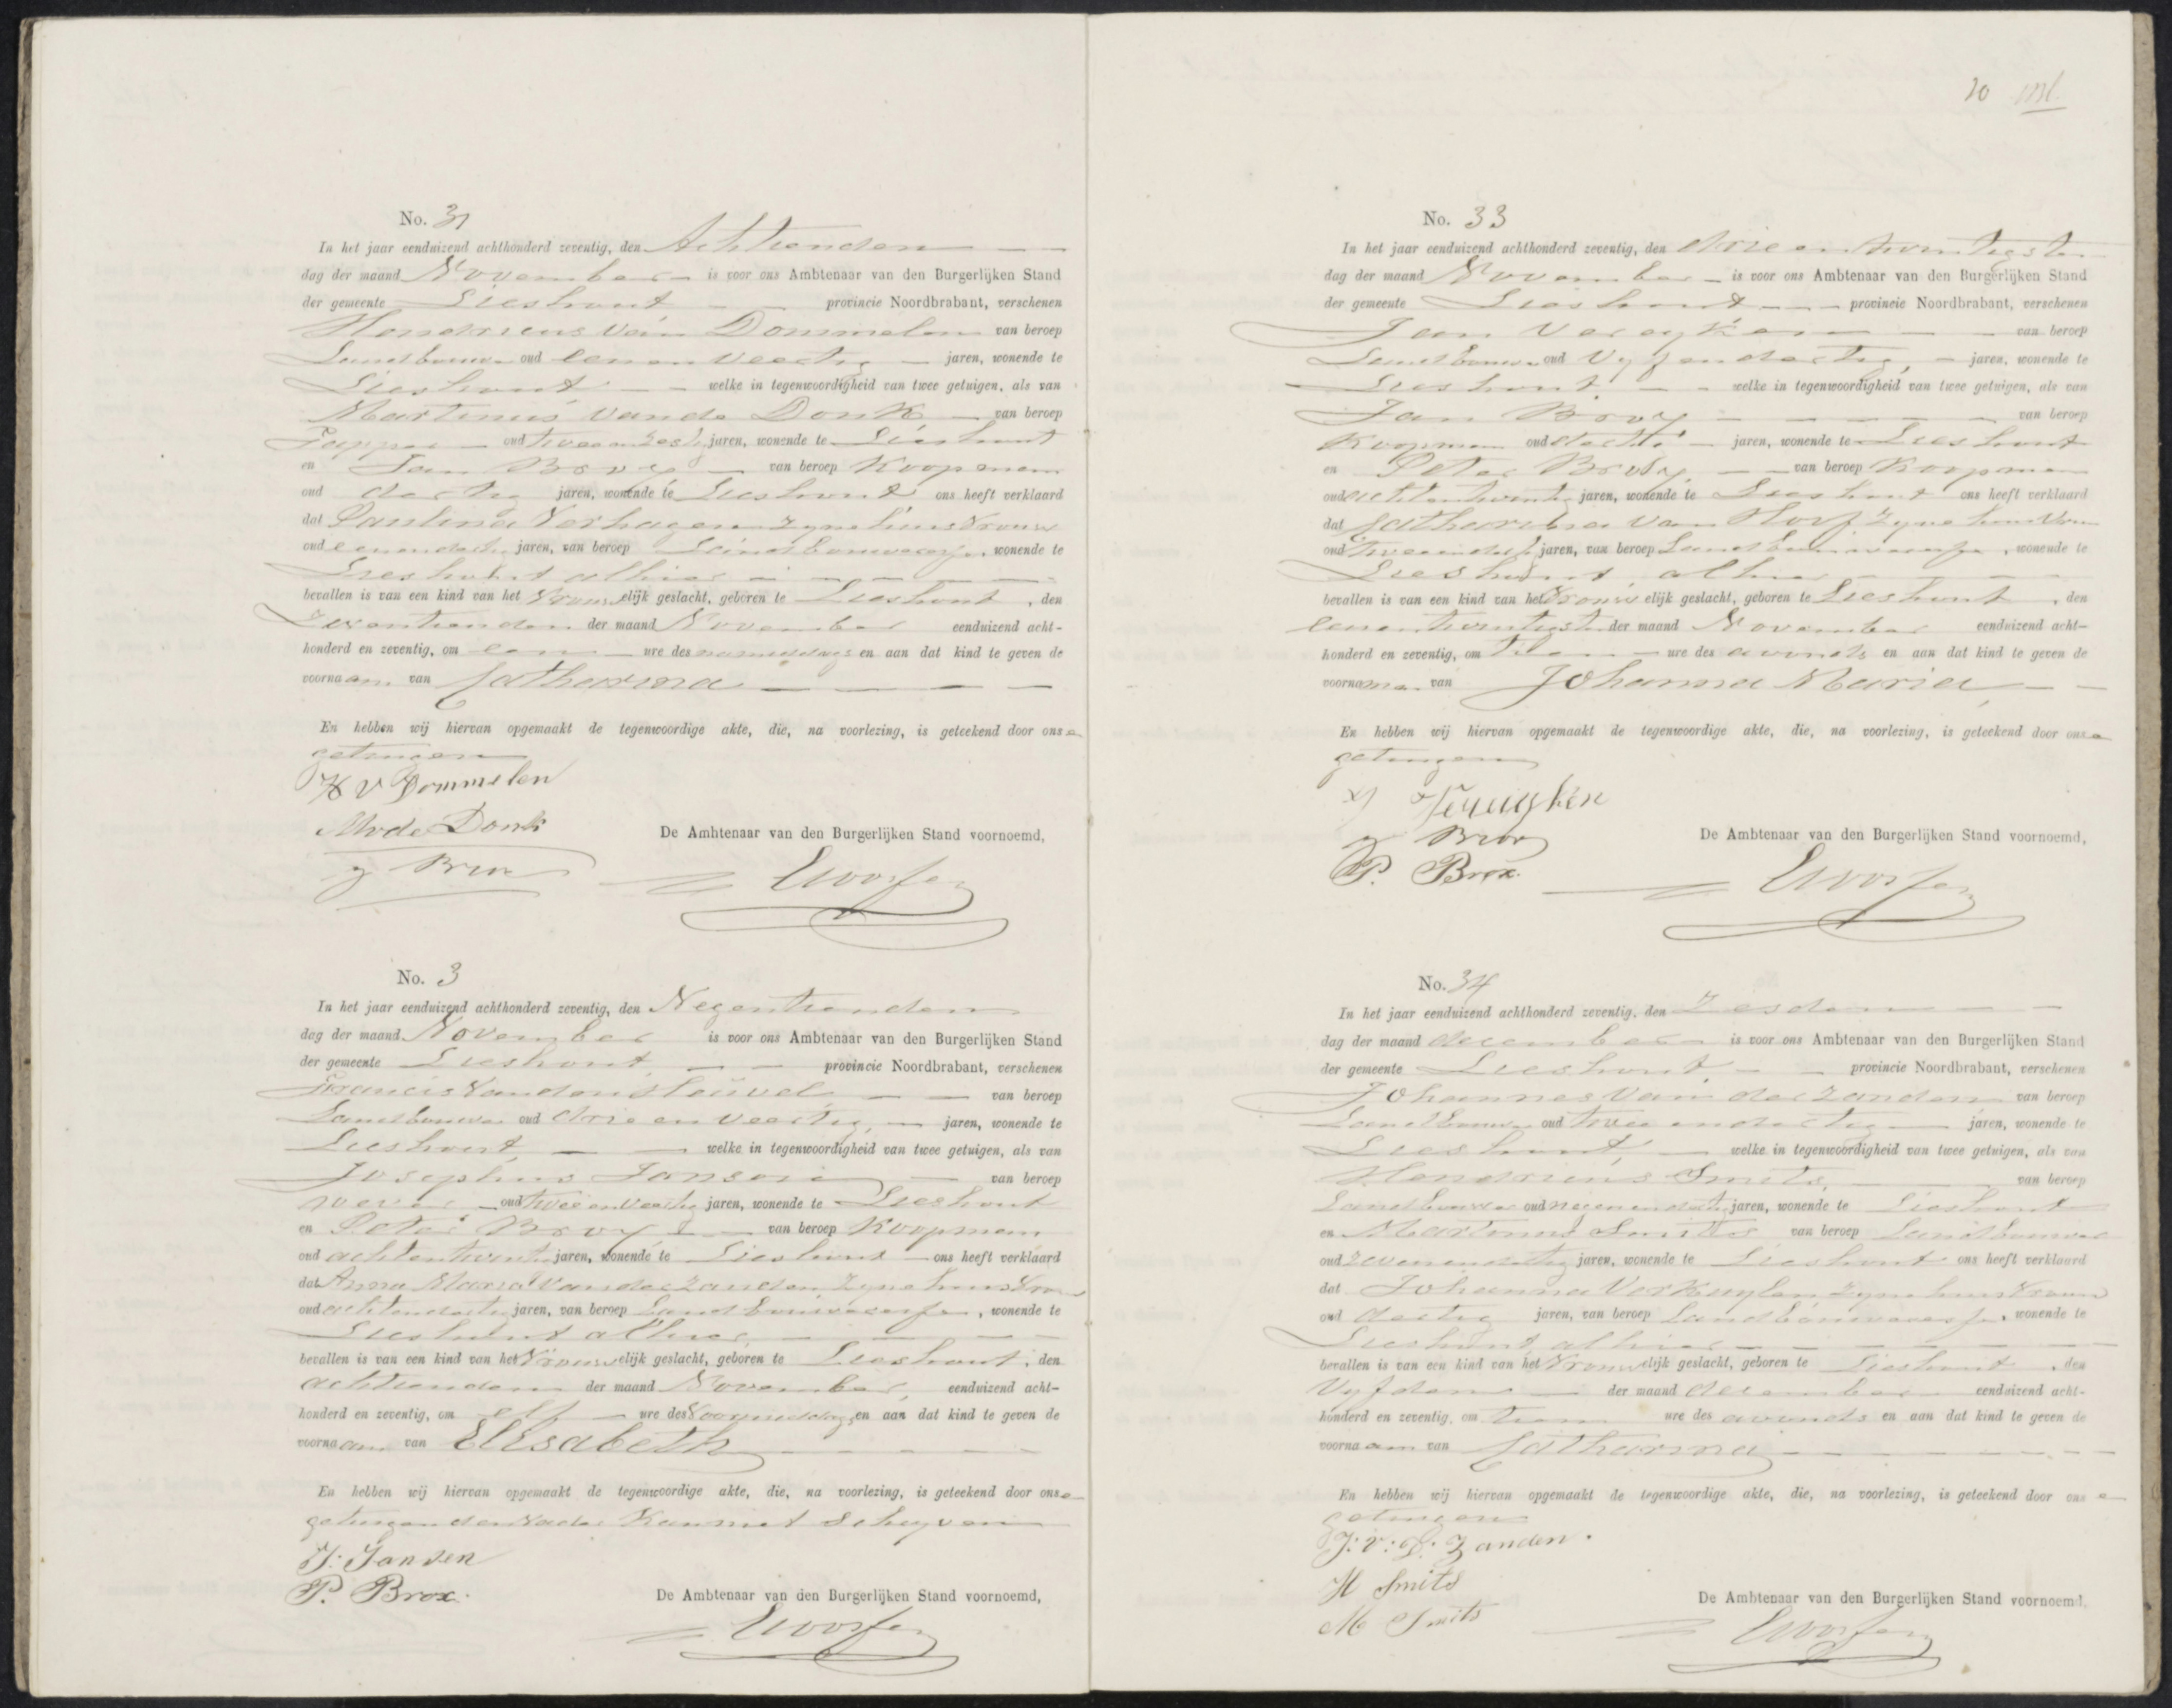 No. 31
In het jaar eenduizend achthonderd zeventig, den Achttienden
dag der maand November is voor ons Ambtenaar van den Burgerlijken Stand
der gemeente Lieshout provincie Noordbrabant, verschenen
Hendricus van Dommelen van beroep
Landbouwer oud eenenveertig jaren, wonende te
Lieshout welke in tegenwoordigheid van twee getuigen, als van
Martinus van de Donk van beroep
Tapper oud tweeenzestig jaren, wonende te Lieshout
en Jan Brox van beroep Koopman
oud dertig jaren, wonende te Lieshout ons heeft verklaard
dat Paulina Verhagen zyne huisvrouw
oud eenendertig jaren, van beroep Landbouweresse, wonende te
Lieshout alhier
bevallen is van een kind van het Vrouwelijk geslacht, geboren te Lieshout, den
Zeventienden der maand November eenduizend acht-
honderd en zeventig, om een ure des namiddags en aan dat kind te geven de
voornaam van Catharina
En hebben wij hiervan opgemaakt de tegenwoordige akte, die, na voorlezing, is geteekend door ons e
getuigen
H V Dommelen
M v de Donk
De Ambtenaar van den Burgerlijken Stand voornoemd,
J Brox
No. 3
In het jaar eenduizend achthonderd zeventig, den Negentienden
dag der maand November is voor ons Ambtenaar van den Burgerlijken Stand
der gemeente Lieshout provincie Noordbrabant, verschenen
Francis Van den Heuvel van beroep
Landbouwer oud drie en veertig, jaren, wonende te
Lieshout, welke in tegenwoordigheid van twee getuigen, als van
Josephus Jansen van beroep
wever oud tweeenveertig jaren, wonende te Lieshout
en Peter Brox van beroep Koopman
oud achtentwintig jaren, wonende te Lieshout ons heeft verklaard
dat Anna Maria Van der Zanden zyne huisvrouw
oud achtendertig jaren, van beroep Landbouweresse, wonende te
Lieshout alhier
bevallen is van een kind van het Vrouwelijk geslacht, geboren te Lieshout, den
achttienden der maand November, eenduizend acht-
honderd en zeventig, om elf ure des Voormiddags en aan dat kind te geven de
voornaam van Elisabeth
En hebben wij hiervan opgemaakt de tegenwoordige akte, die, na voorlezing, is geteekend door ons e
getuigen den Vader Kan niet Schryven
J: Jansen
P. Brox.
De Ambtenaar van den Burgerlijken Stand voornoemd,
20
No. 33
In het jaar eenduizend achthonderd zeventig, den drie en twintigsten
dag der maand November is voor ons Ambtenaar van den Burgerlijken Stand
der gemeente Lieshout provincie Noordbrabant, verschenen
Jan Vereyken van beroep
Landbouwer oud Vyfendertig, jaren, wonende te
Lieshout, welke in tegenwoordigheid van twee getuigen, als van
Jan Brox van beroep
Koopman oud dertig jaren, wonende te Lieshout
en Peter Brox van beroep Koopman
oud achtentwintig jaren, wonende te Lieshout ons heeft verklaard
dat Catharina van Hoof zyne huisvrouw
oud tweeendertig jaren, van beroep Landbouweresse, wonende te
Lieshout, alhier
bevallen is van een kind van het Vrouwelijk geslacht, geboren te Lieshout, den
eenentwintigsten der maand November eenduizend acht-
honderd en zeventig, om tien ure des avonds en aan dat kind te geven de
voornamen van Johanna Maria
En hebben wij hiervan opgemaakt de tegenwoordige akte, die, na voorlezing, is geteekend door ons e
getuigen
J Brox
De Ambtenaar van den Burgerlijken Stand voornoemd,
P. Brox.
No. 34
In het jaar eenduizend achthonderd zeventig, den Zesden
dag der maand december is voor ons Ambtenaar van den Burgerlijken Stand
der gemeente Lieshout, provincie Noordbrabant, verschenen
Johannes Van der Zanden van beroep
Landbouwer oud twee endertig jaren, wonende te
Lieshout, welke in tegenwoordigheid van twee getuigen, als van
Hendricus Smits, van beroep
Landbouwer oud negenendertig jaren, wonende te Lieshout
en Martinus Smits van beroep Landbouwer
oud zevenendertig jaren, wonende te Lieshout ons heeft verklaard
dat Johanna VerKuylen zyne huisvrouw
oud dertig jaren, van beroep Landbouweresse, wonende te
Lieshout, alhier
bevallen is van een kind van het Vrouwelijk geslacht, geboren te Lieshout, den
Vyfden der maand december eenduizend acht-
honderd en zeventig, om tien ure des avonds en aan dat kind te geven de
voornaam van Catharina
En hebben wij hiervan opgemaakt de tegenwoordige akte, die, na voorlezing, is geteekend door ons e
getuigen
J: v: D: Zanden.
H Smits
De Ambtenaar van den Burgerlijken Stand voornoemd,
M Smits